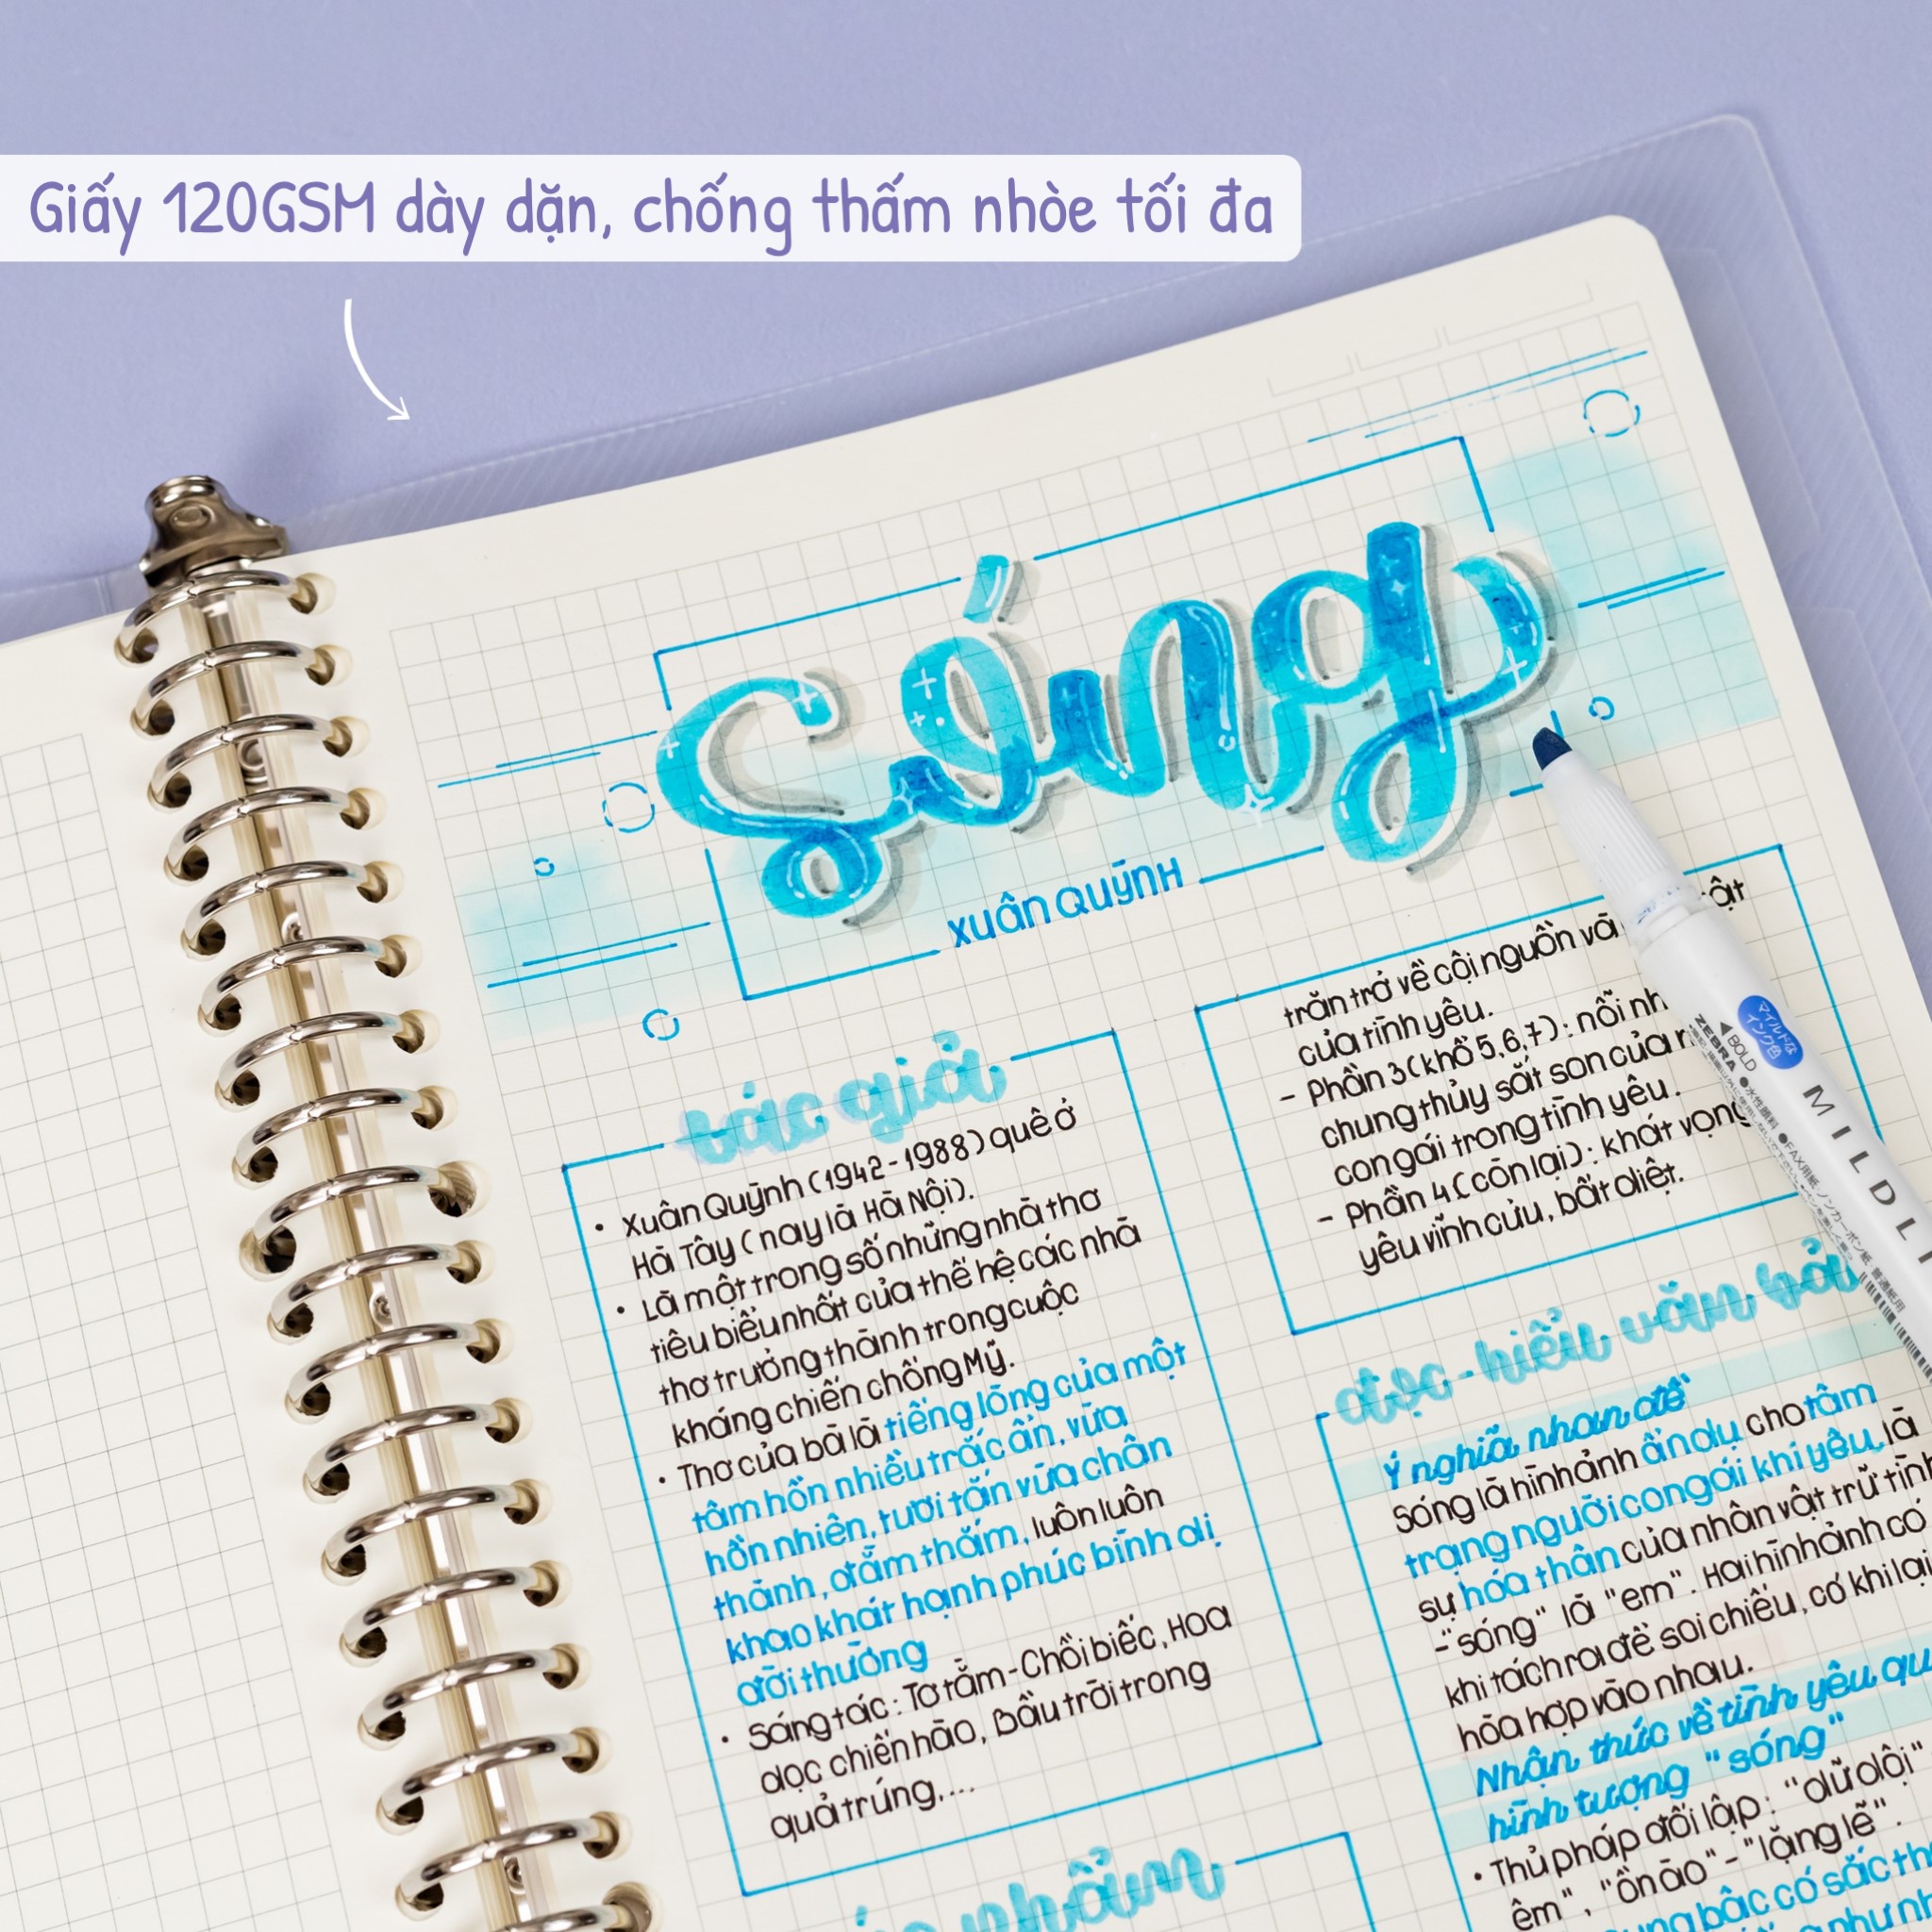 Giấy 120GSM dày dặn, chống thấm nhòe tối đa
Sóng
Xuân Quỳnh
tác giả
• Xuân Quỳnh (1942-1988) quê ở
Hà Tây (nay là Hà Nội).
• Là một trong số những nhà thơ
tiêu biểu nhất của thế hệ các nhà
thơ trưởng thành trong cuộc
kháng chiến chống Mỹ.
• Thơ của bà là tiếng lòng của một
tâm hồn nhiều trắc ẩn, vừa
hồn nhiên, tươi tắn vừa chân
thành, đằm thắm, luôn luôn
khao khát hạnh phúc bình dị
đời thường
• Sáng tác: Tơ tằm - Chồi biếc, Hoa
dọc chiến hào, Bầu trời trong
quả trứng,...
phẩm
trăn trở về cội nguồn và
của tình yêu.
- Phần 3 (khổ 5,6,7): nỗi
chung thủy sắt son của
con gái trong tình yêu.
- Phần 4 (còn lại): khát vọng
yêu vĩnh cửu, bất diệt.
đọc-hiểu văn bản
Ý nghĩa nhan đề
Sóng là hình ảnh ẩn dụ cho tâm
trạng người con gái khi yêu, là
sự hóa thân của nhân vật trữ tình
-"sóng" là "em". Hai hình ảnh có
khi tách ra để soi chiếu, có khi lại
hòa hợp vào nhau.
Nhận thức về tình yêu
hình tượng "sóng"
• Thủ pháp đối lập: "dữ dội"
êm", "ồn ào"-"lặng lẽ".
bậc có sắc
như
ZEBRA
BOLD
マイルドな
インク色
水性顔料
FAX用紙 ノンカーボン紙 普通紙用